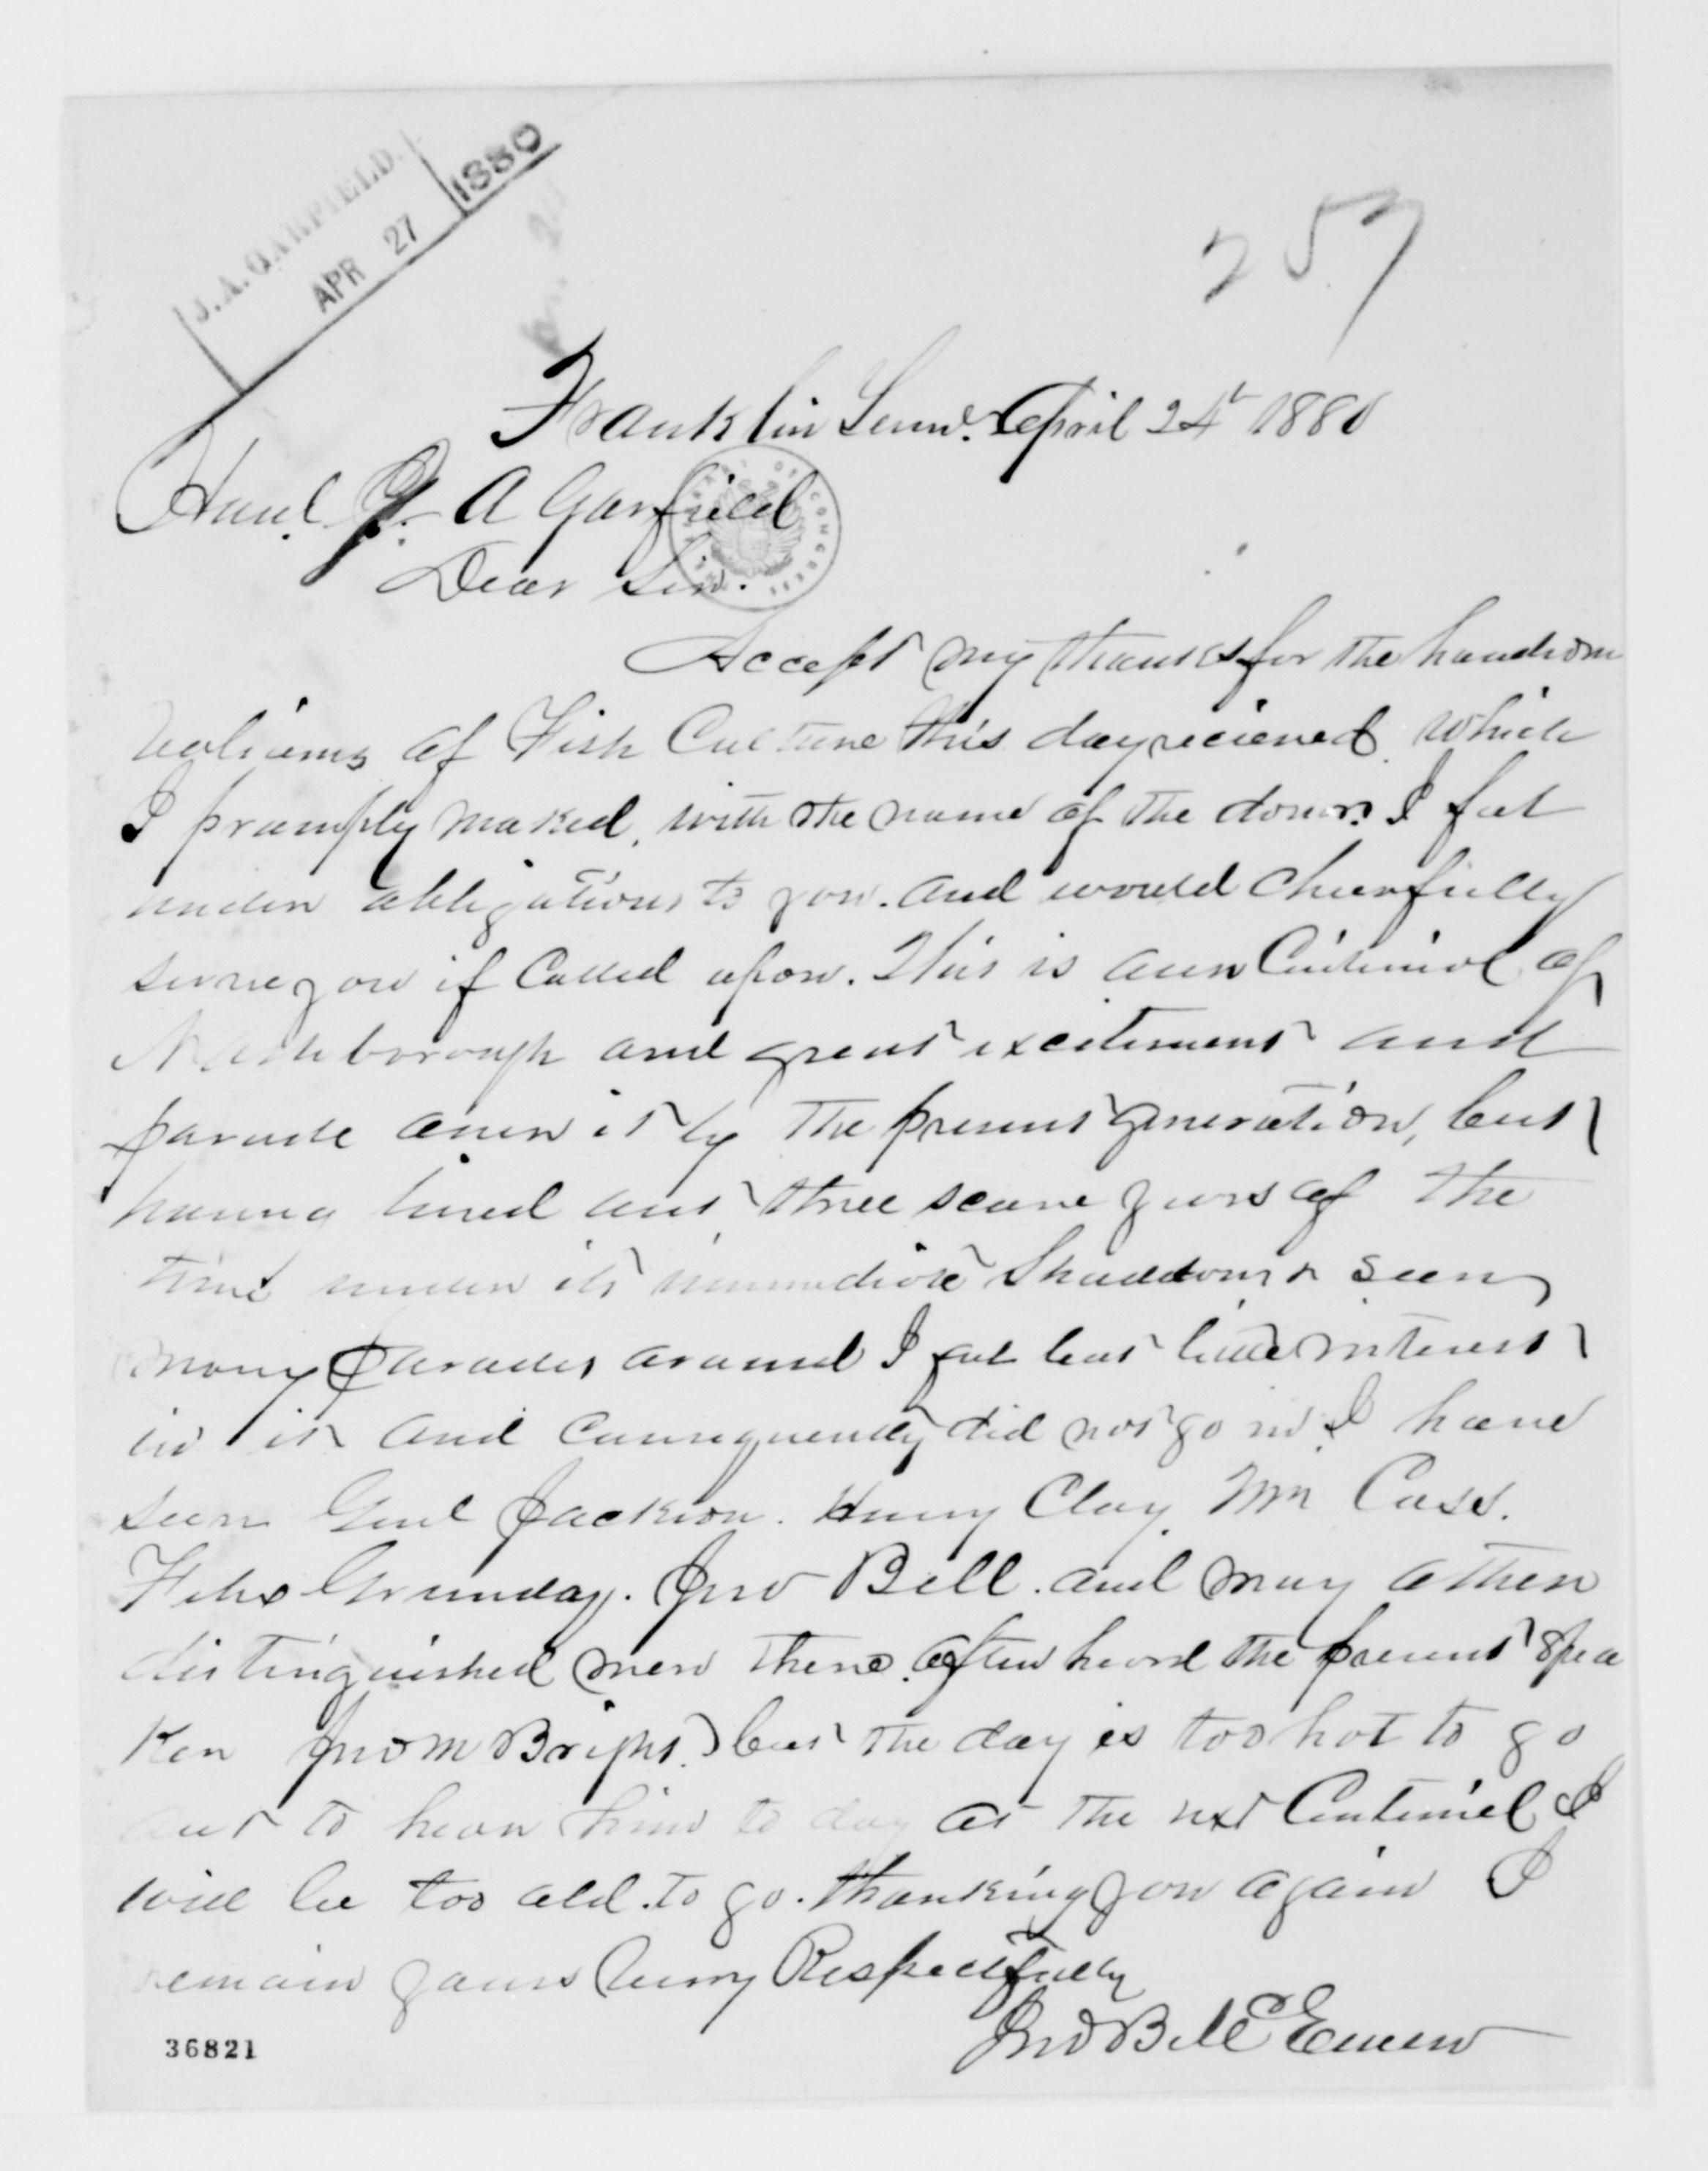 J. A. GARFIELD.
APR 27 1880
257
Franklin Tenn. April 24th 1880
Honl. J. A Garfield
Dear Sir.
Accept my thanks for the handsom
voliams of Fish Culture this day recieved. which
I promply maked, with the name of the donor. I feel
under obligations to you. and would cheerfully
serve you if Called upon. This is our Centinial of
Nashborough and great excitement and
parade over it by the present generation, but
having lived out three score years of the
time under its immediate Shaddows & seen
many parades around I feel but little interest
in it and consequently did not go in. I have
seen Genl Jackson. Henry Clay. Mr Cass.
Felix Grunday. Jno Bell. and many other
distinguished men there. often heard the present Spea
ker Jno M Bright. but the day is too hot to go
out to hear him to day at the next Centiniel I
will be too old. to go. thanking you again I
remain yours very Respectfully
Jno B McEwen
36821